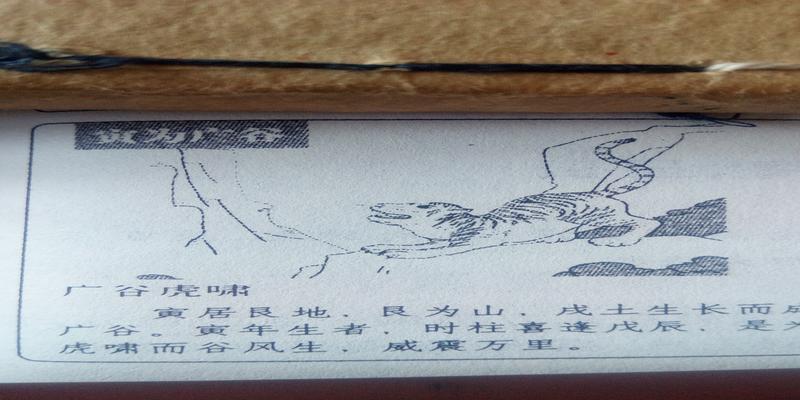 寅为广谷
广谷虎啸
寅居艮地，艮为山，戌土生长而
广谷。寅年生者，时柱喜逢戊辰，是
虎啸而谷风生，威震万里。